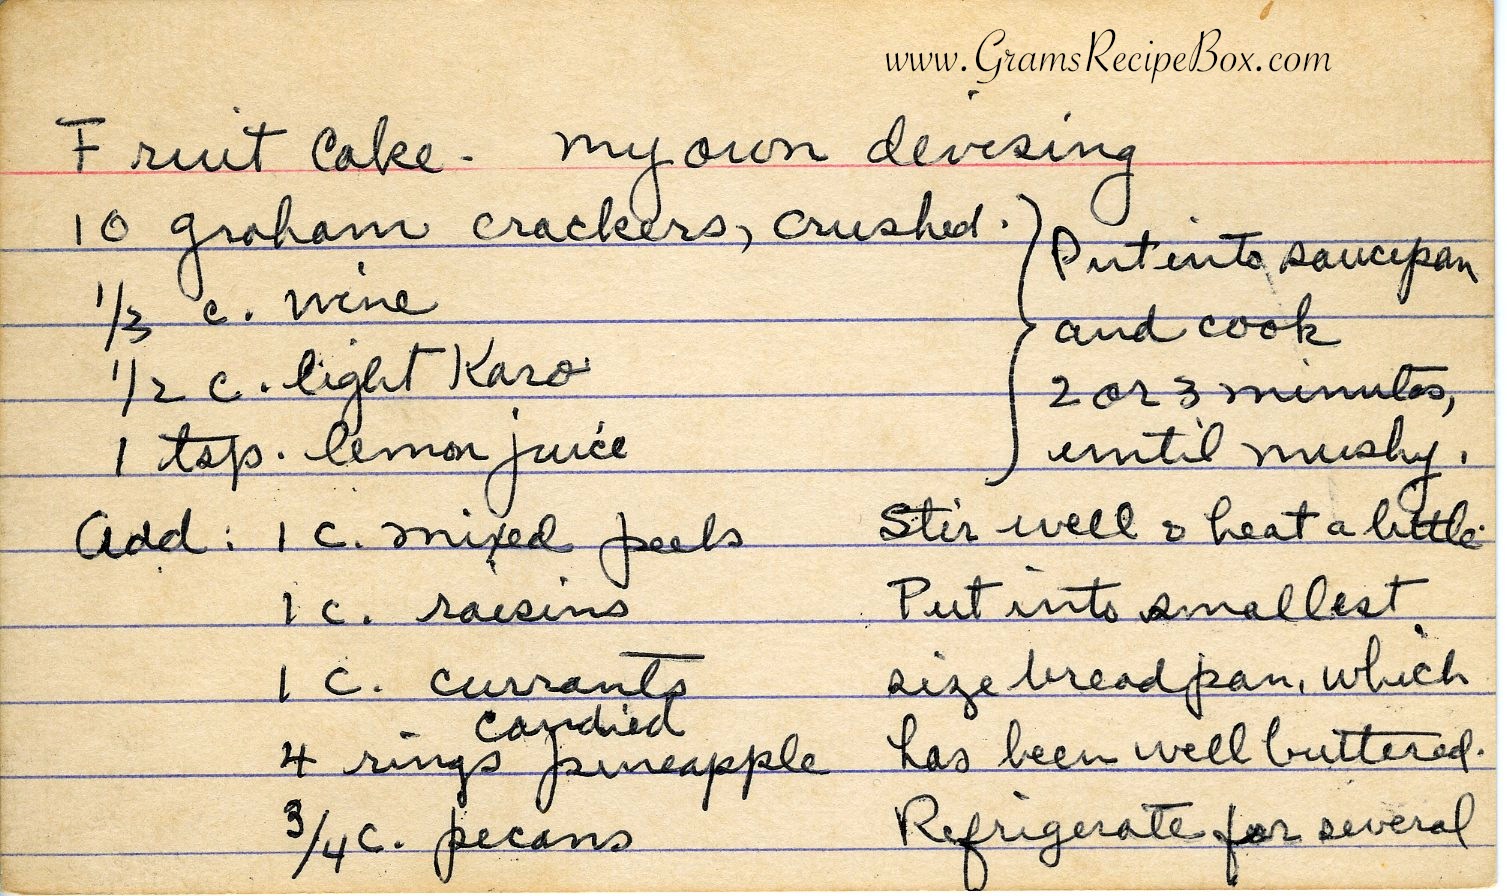 www.GramsRecipeBox.com
Fruit Cake - my own devising
10 graham crackers, crushed.
1/3 c. wine
1/2 c. light Karo
1 tsp. lemon juice
Put into saucepan
and cook
2 or 3 minutes,
until mushy.
Add: 1 c. mixed peels
1 c. raisins
1 c. currants
candied
4 rings pineapple
3/4 c. pecans
Stir well & heat a little.
Put into smallest
size bread pan, which
has been well buttered.
Refrigerate for several